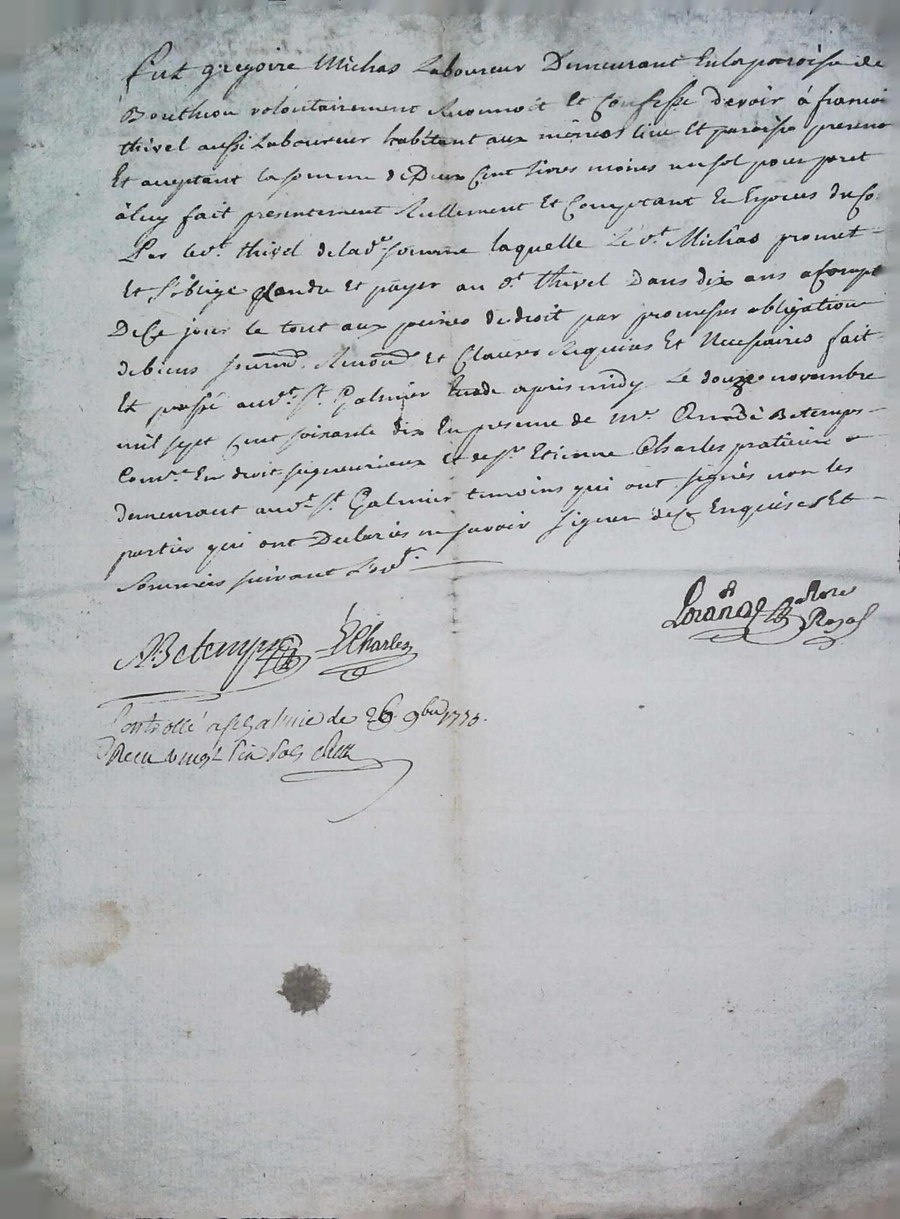 fut gregoire Michas Laboureur Demeurant En la paroisse de
Bouthion volontairement Reconnoit Et Confesse devoir à francois
thivel aussi Laboureur habitant aux mêmes lieu Et paroisse present
Et aceptant la somme de Deux Cent livres moins un sol pour pret
à luy fait presentement Reellement Et Comptant En Especes du Co
Par led.t thivel de lad.e somme laquelle Led.t Michas promet
Et s'oblige Rendre Et payer au d.t thivel Dans dix ans a Compt
De Ce jour le tout aux peines de droit par promesses obligation
de biens Renon.on Et Clauses Requises Et Necessaires fait
Et passé aud.t S.t Galmier Etude après midy Le douze novembre
mil sept Cent soixante dix En presence de m.re Betemps
Com.re En droit seigneuriaux Et de S.r Etienne Charles praticien
demeurant aud.t S.t Galmier temoins qui ont signés non les
parties qui ont Declarés ne savoir signer de Ce Enquises Et
Sommées suivant L'ord.
ABetemps ECharles
Note
Royal
Controllé a St galmier le 26 9bre 1770.
Recu vingt six sols